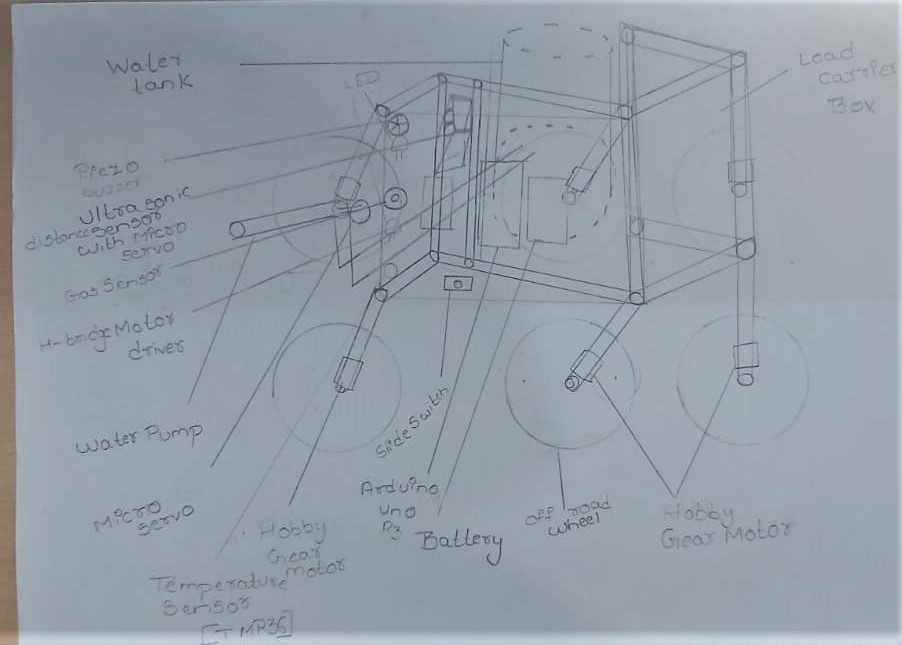 Water
tank
LED
Load
Carrier
Box
Piezo
buzzer
Ultrasonic
distance sensor
with Micro
servo
Gas Sensor
H-bridge Motor
driver
Water Pump
Micro
servo
Temperature
Sensor
[TMP36]
Hobby
Gear
motor
Slide Switch
Arduino
uno
R3
Battery
off road
wheel
Hobby
Gear Motor